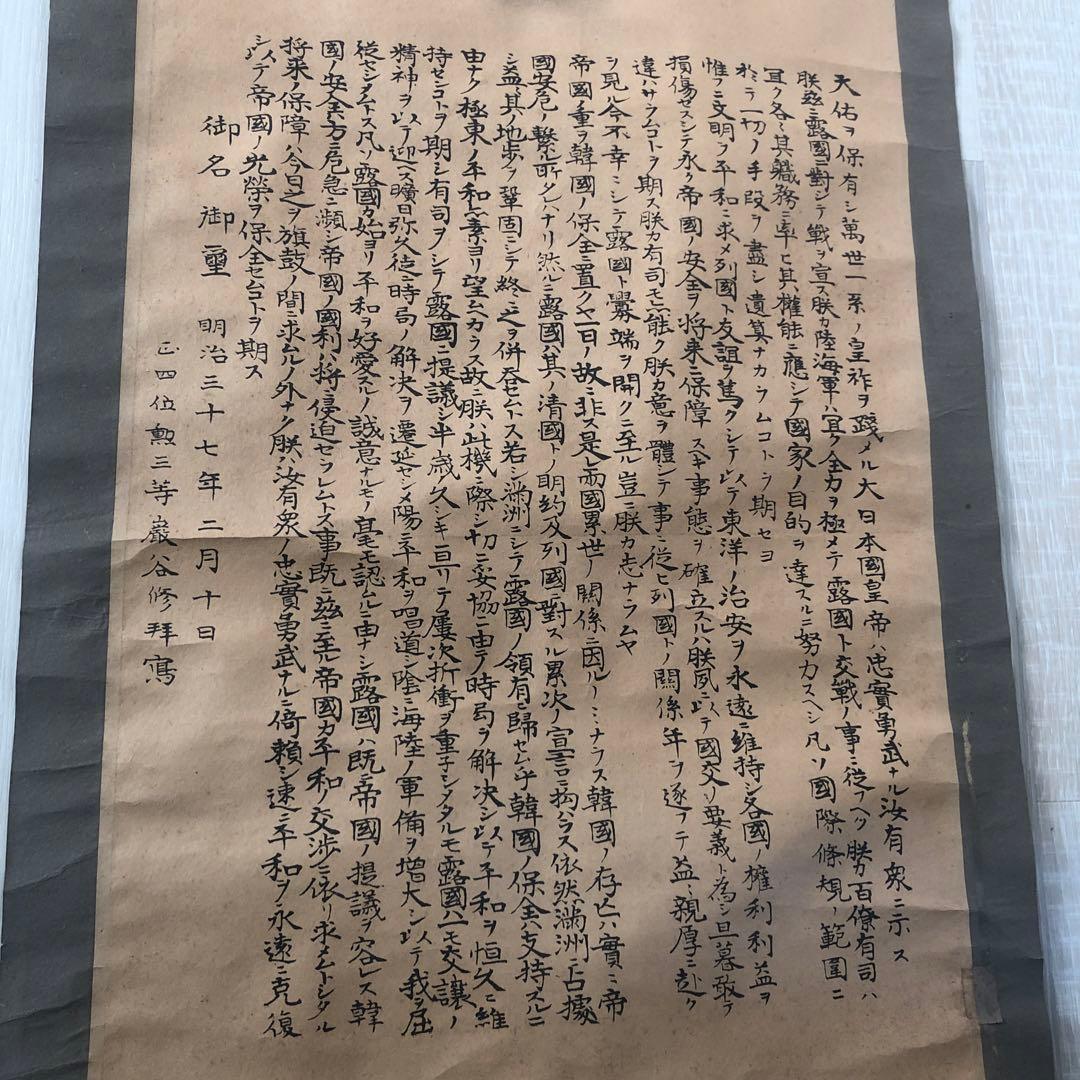 天佑ヲ保有シ萬世一系ノ皇祚ヲ踐メル大日本國皇帝ハ忠實勇武ナル汝有衆ニ示ス
朕茲ニ露國ニ對シテ戰ヲ宣ス朕カ陸海軍ハ宜ク全力ヲ極メテ露國ト交戰ノ事ニ從フヘク朕カ百僚有司ハ
宜ク各々其職務ニ率ヒ其權能ニ應シテ國家ノ目的ヲ達スルニ努力スヘシ凡ソ國際條規ノ範囲ニ
於テ一切ノ手段ヲ盡シ遺算ナカラムコトヲ期セヨ
惟フニ文明ヲ平和ニ求メ列國ト友誼ヲ篤クシテ以テ東洋ノ治安ヲ永遠ニ維持シ各國ノ權利利益ヲ
損傷セスシテ永ク帝國ノ安全ヲ将来ニ保障スヘキ事態ヲ確立スルハ朕夙ニ以テ國交ノ要義ト為シ旦暮敢テ
違ハサラムコトヲ期ス朕カ有司モ亦能ク朕カ意ヲ體シテ事ニ從ヒ列國トノ關係年ヲ逐フテ益々親厚ニ赴ク
ヲ見ル今不幸ニシテ露國ト釁端ヲ開クニ至ル豈ニ朕カ志ナラムヤ
帝國ノ重ヲ韓國ノ保全ニ置クヤ一日ノ故ニ非ス是レ兩國累世ノ關係ニ因ルノミナラス韓國ノ存亡ハ實ニ帝
國安危ノ繋ル所タレハナリ然ルニ露國ハ其ノ清國トノ明約及列國ニ對スル累次ノ宣言ニ拘ハラス依然滿洲ニ占據
シ益々其ノ地歩ヲ鞏固ニシテ終ニ之ヲ併呑セムトス若シ滿洲ニシテ露國ノ領有ニ歸セム乎韓國ノ保全ハ支持スルニ
由ナク極東ノ平和亦素ヨリ望ムヘカラス故ニ朕ハ此機ニ際シ切ニ妥協ニ由テ時局ヲ解決シ以テ平和ヲ恒久ニ維
持センコトヲ期シ有司ヲシテ露國ニ提議シ半歳ノ久シキニ亘リテ屡次折衝ヲ重子シメタルモ露國ハ一モ交讓ノ
精神ヲ以テ迎ヘス曠日弥久徒ニ時局ノ解決ヲ遷延セシメ陽ニ平和ヲ唱道シ陰ニ海陸ノ軍備ヲ增大シ以テ我ヲ屈
從セシメムトス凡ソ露國カ始ヨリ平和ヲ好愛スルノ誠意ナルモノ毫モ認ムルニ由ナシ露國ハ既ニ帝國ノ提議ヲ容レス韓
國ノ安全ハ方ニ危急ニ瀕シ帝國ノ國利ハ将ニ侵迫セラレムトス事既ニ茲ニ至ル帝國カ平和ノ交渉ニ依リ求メムトシタル
将来ノ保障ハ今日之ヲ旗鼓ノ間ニ求ムルノ外ナク朕ハ汝有衆ノ忠實勇武ナルニ倚頼シ速ニ平和ヲ永遠ニ克復
シ以テ帝國ノ光榮ヲ保全セムコトヲ期ス
御名御璽 明治三十七年二月十日
正四位勲三等巖谷修拜寫